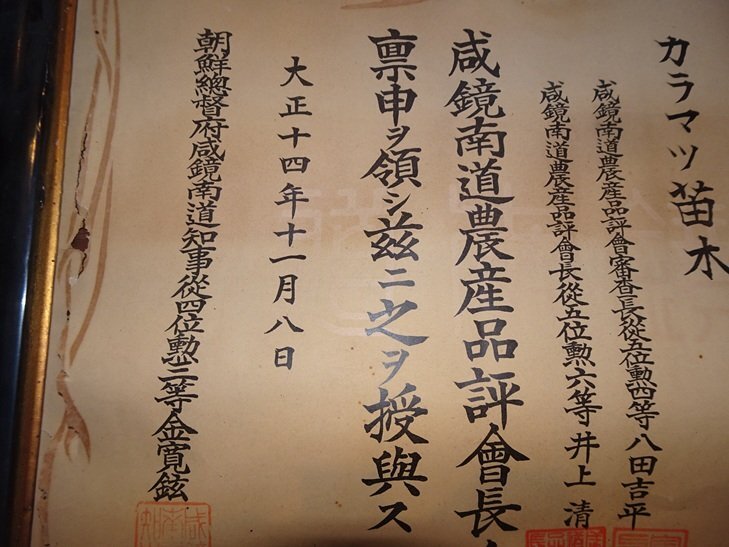 カラマツ苗木
咸鏡南道農産品評會審査長從五位勲四等八田吉平
咸鏡南道農産品評會長從五位勲六等井上清
咸鏡南道農産品評會長
稟申ヲ領シ茲ニ之ヲ授與ス
大正十四年十一月八日
朝鮮總督府咸鏡南道知事從四位勲三等金寛鉉